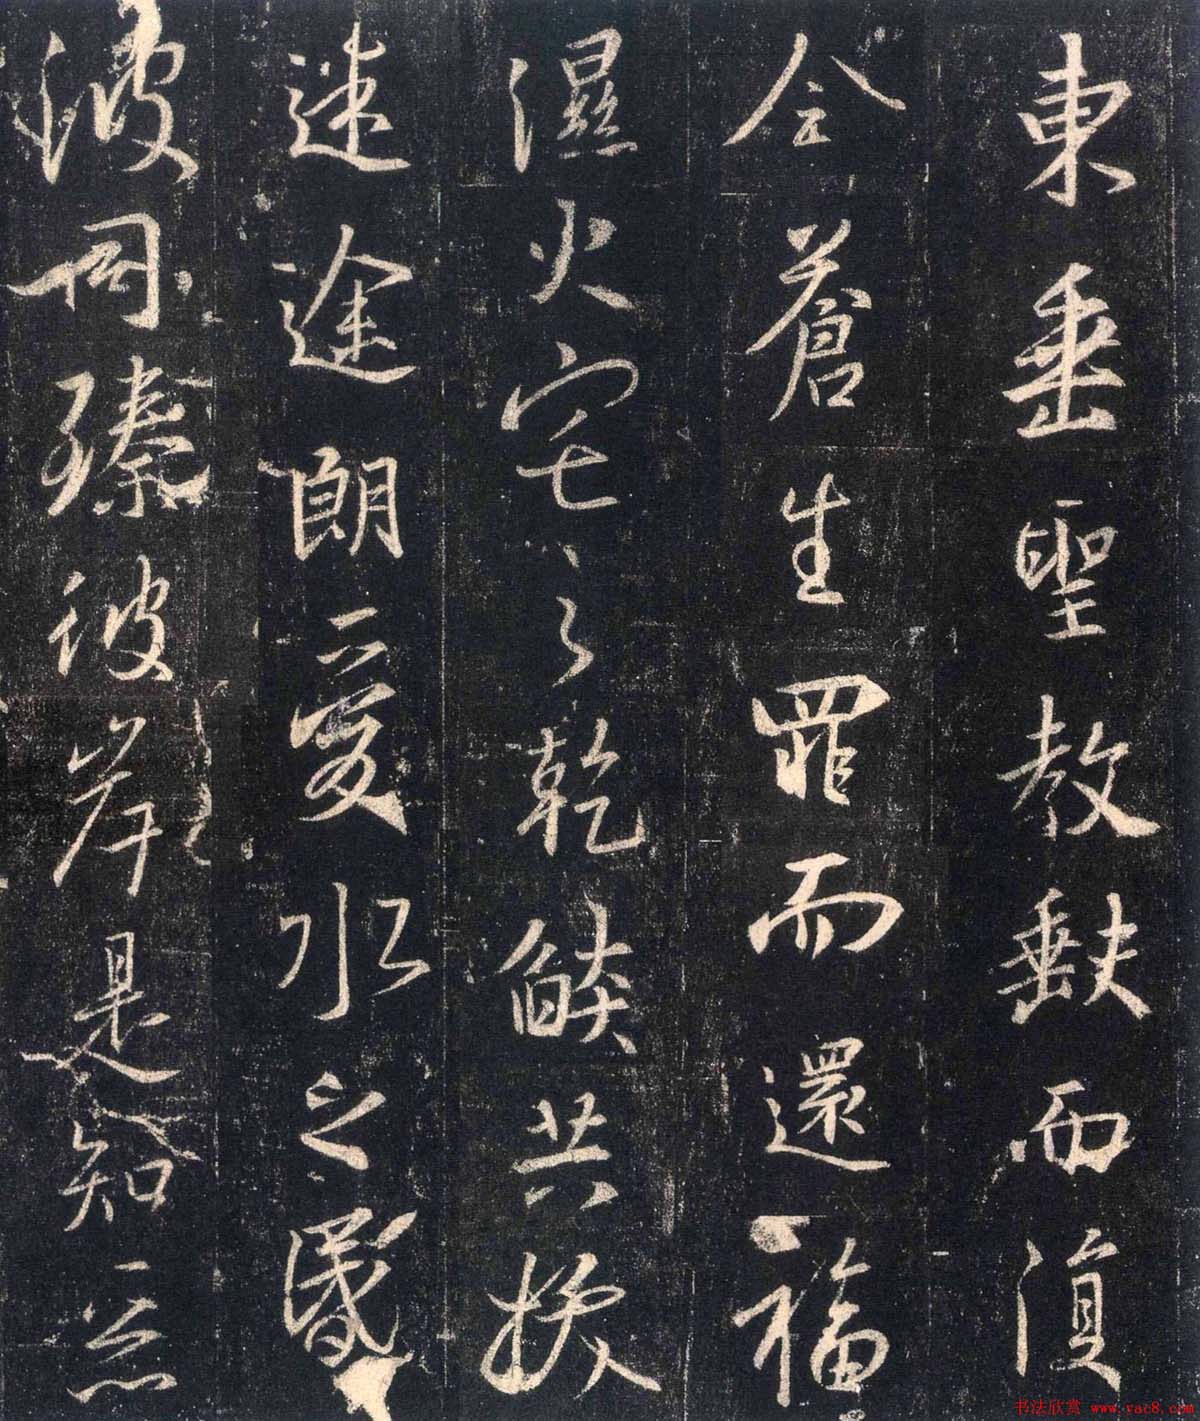 東垂聖教缺而復
全蒼生罪而還福
濕火宅之乾燄共拔
迷途朗愛水之昏
波同臻彼岸是知惡
书法欣赏 www.yac8.com